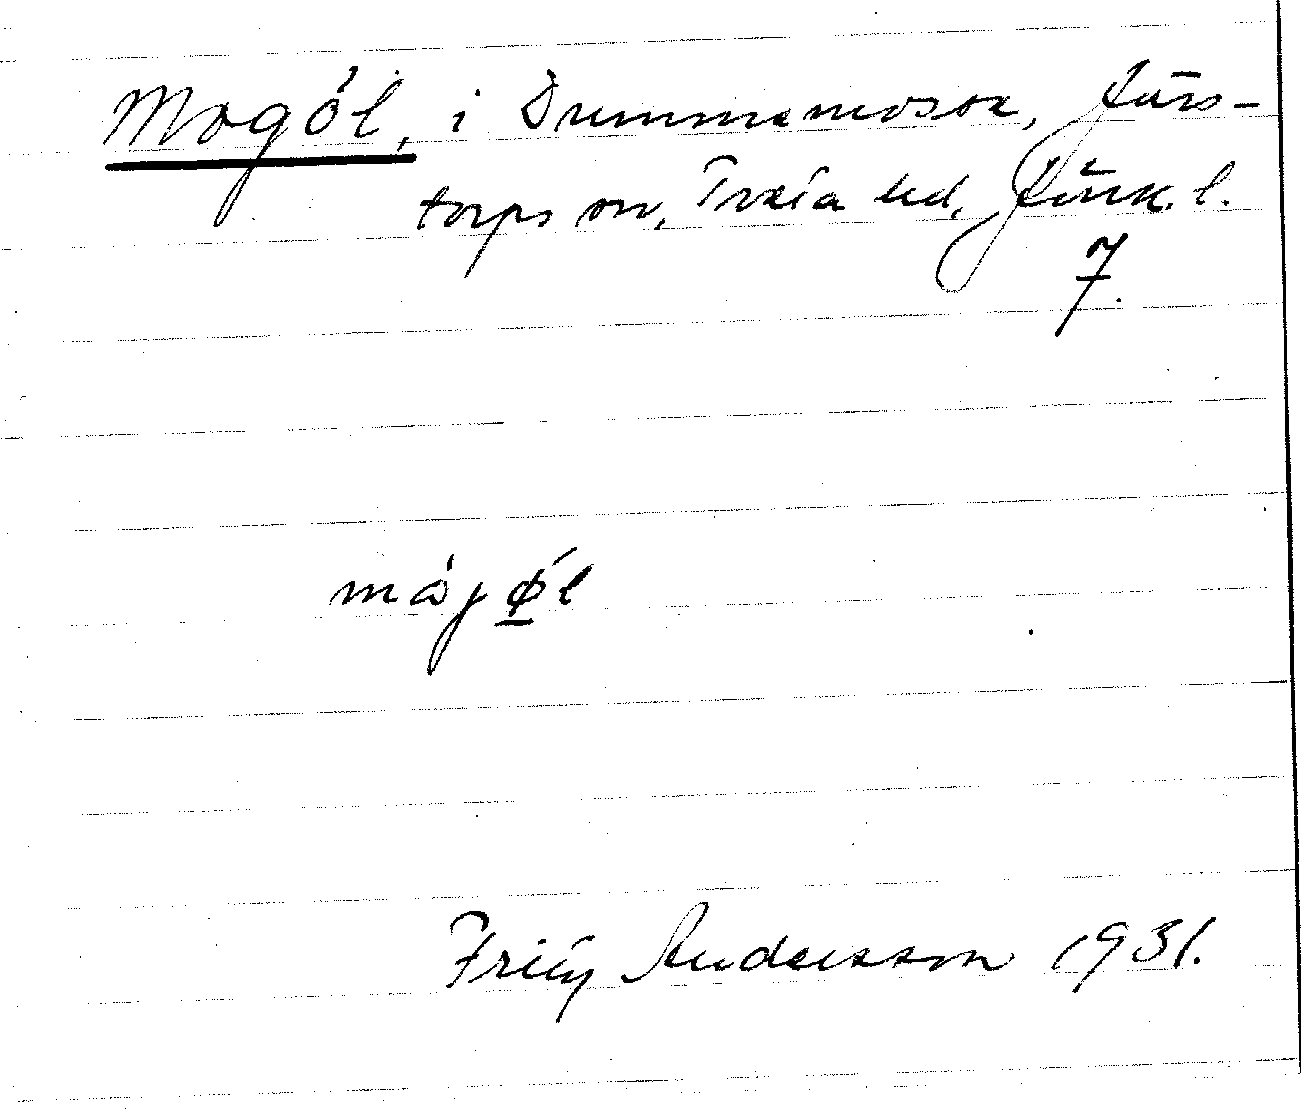 Mogöl, i Dummemosse, Järs-
torps sn, Tveta hd, Jönk. l.
7.
måjøl
Fritz Andersson 1931.